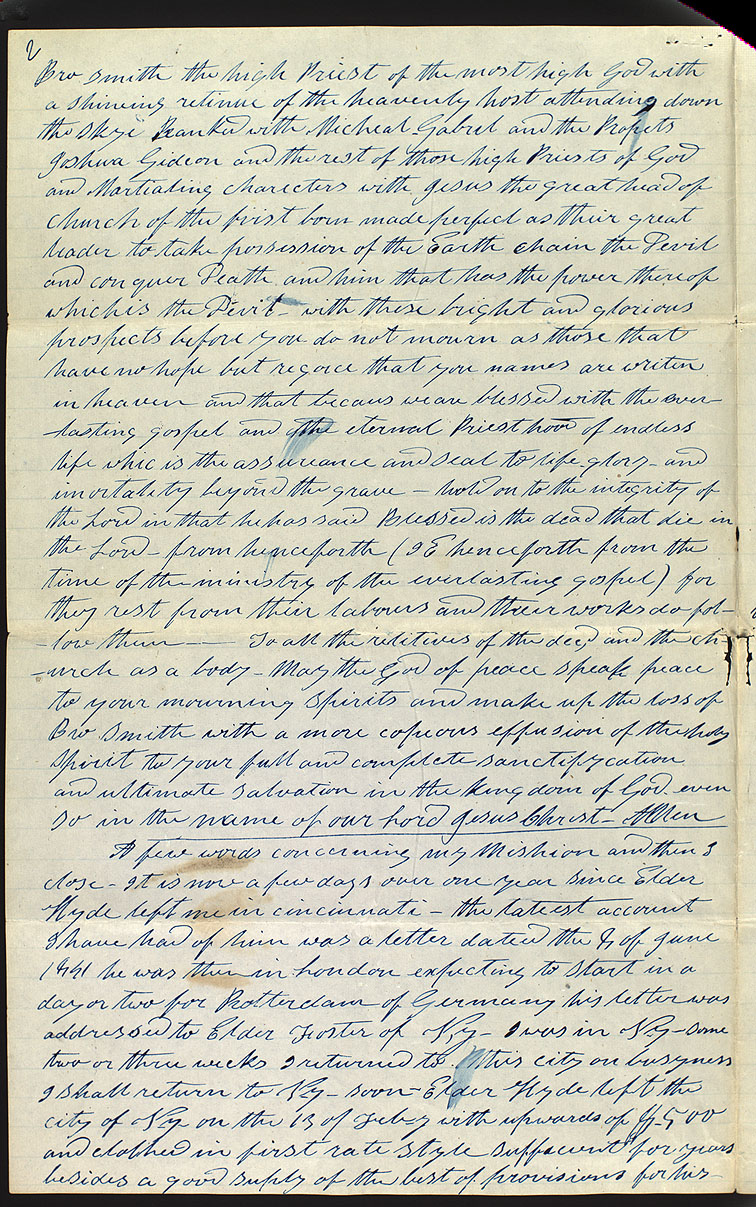 2
Bro Smith the high Priest of the most high God with
a shineing retinue of the heavenly host attending down
the skye Ranked with Micheal Gabrel and the Propets
Joshua Gideon and the rest of those high Priests of God
and Martialing charecters with Jesus the great head of
church of the first born made perfect as their great
leader to take possession of the Earth chain the Devil
and conquer Death and him that has the power thereof
which is the Devil - with these bright and glorious
prospects before you do not mourn as those that
have no hope but rejoice that you names are writen
in heaven and that becaus we are blessed with the ever-
-lasting gospel and the eternal Priesthood of endless
life whic is the assureance and seal to life glory and
imortality beyond the grave - hold on to the integrity of
the Lord in that he has said Blessed is the dead that die in
the Lord - from henceforth (I E henceforth from the
time of the ministry of the everlasting gospel) for
they rest from their labours and their works do fol-
-low them — To all the relitives of the decd and the ch-
-urch as a body - May the God of peace speak peace
to your mourning spirits and make up the loss of
Bro Smith with a more copeous effusion of the holy
spirit to your full and complete sanctifycation
and ultimate salvation in the kingdom of God even
so in the name of our Lord Jesus Christ - AMen
A few words concerning my Mishion and then I
close - It is now a few days over one year since Elder
Hyde left me in cincinnati - the latest account
I have had of him was a letter dated the of June
1841 he was then in London expecting to start in a
day or two for Rotterdam of Germany his letter was
addressed to Elder Foster of NY - I was in NY - some
two or three weeks I returned to this city on busyness
I shall return to NY - soon - Elder Hyde left the
city of NY on the 13 of Feby with upwards of 500
and clothed in first rate style suffecient for years
besides a good suply of the best of provisions for his